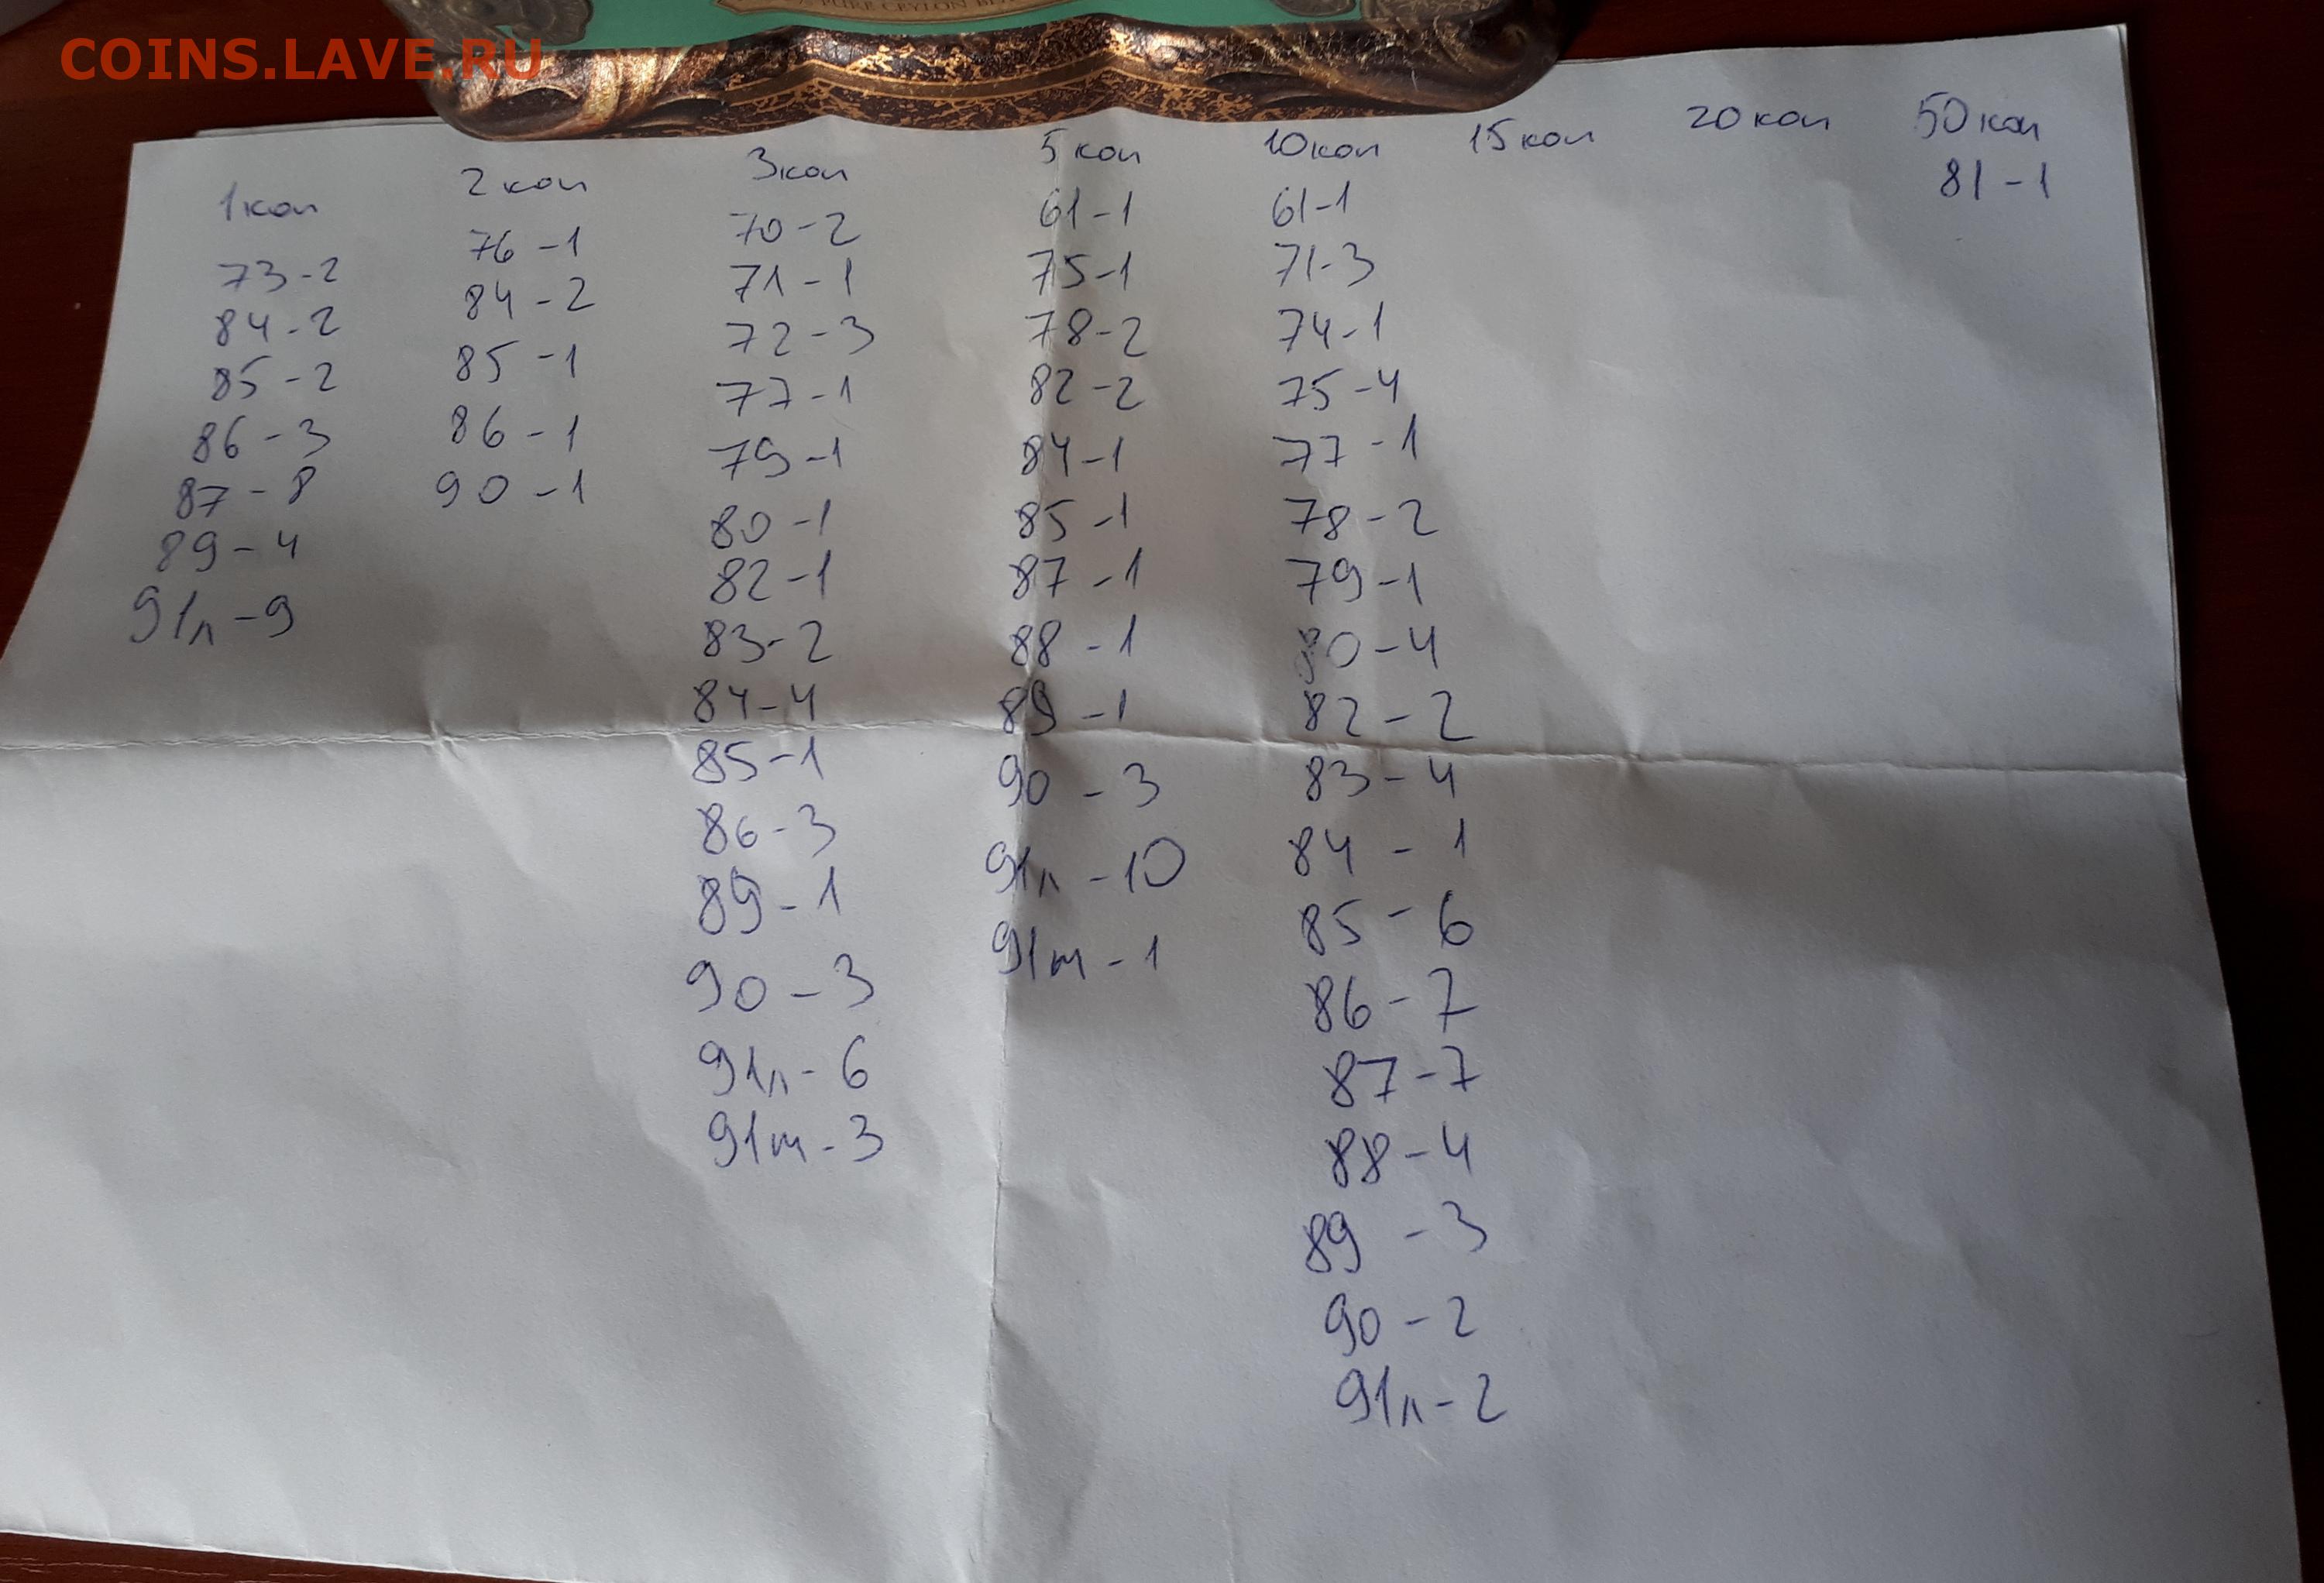 COINS.LAVE.RU
PURE CEYLON
1коп
73-2
84-2
85-2
86-3
87-8
89-4
91л-9
2коп
76-1
84-2
85-1
86-1
90-1
3коп
70-2
71-1
72-3
77-1
79-1
80-1
82-1
83-2
84-4
85-1
86-3
89-1
90-3
91л-6
91м-3
5коп
61-1
75-1
78-2
82-2
84-1
85-1
87-1
88-1
89-1
90-3
91л-10
91м-1
10коп
61-1
71-3
74-1
75-4
77-1
78-2
79-1
80-4
82-2
83-4
84-1
85-6
86-7
87-7
88-4
89-3
90-2
91л-2
15коп
20коп
50коп
81-1